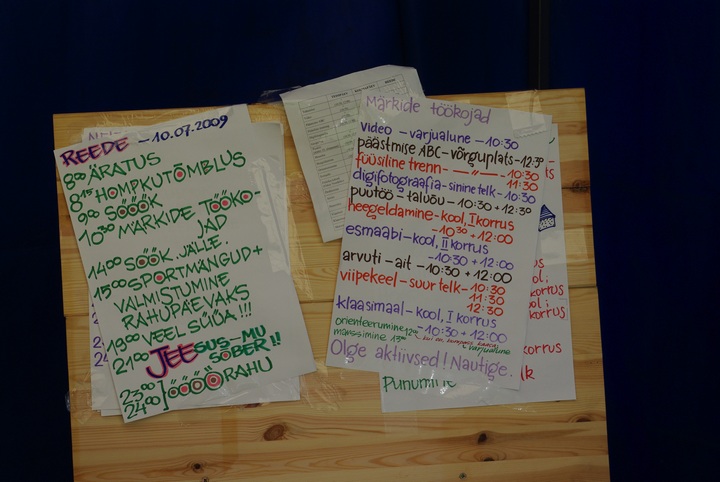 REEDE - 10.07.2009
8⁰⁰ ÄRATUS
8⁴⁵ HOMPKUTÕMBLUS
9⁰⁰ SÖÖÖK
10³⁰ MÄRKIDE TÖÖKO-
JAD
14⁰⁰ SÖÖK JÄLLE.
15⁰⁰ SPORTMÄNGUD+
VALMISTUMINE
RAHUPÄEVAKS
19⁰⁰ VEEL SÜÜA!!!
21⁰⁰ JEESUS-MU
SÕBER!!
23⁰⁰
24⁰⁰ ] ÖÖÖÖRAHU
Märkide töökojad
video - varjualune - 10:30
päästmise ABC - võrguplats - 12:30
füüsiline trenn - -"- - 10:30
11:30
digifotograafia - sinine telk - 10:30
puutöö - taluõu - 10:30 + 12:30
heegeldamine - kool, I korrus
- 10³⁰ + 12:00
esmaabi - kool, II korrus
- 10:30 + 12:00
arvuti - ait - 10:30 + 12:00
viipekeel - suur telk - 10:30
11:30
12:30
klaasimaal - kool, I korrus
- 10:30 + 12:00
orienteerumine 12⁰⁰
varjualune
Olge aktiivsed! Nautige.
ol;
korrus
ol;
korrus
korrus
lk
punumine